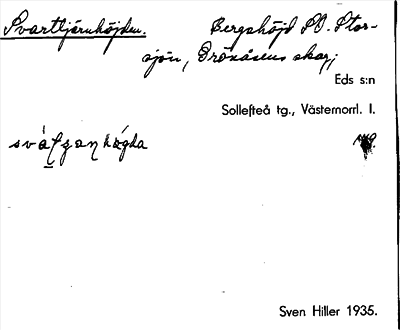 Svarttjärnhöjden. Bergshöjd SO. Stor-
sjön, Dröxåsens skog;
Eds s:n
Sollefteå tg., Västernorrl. l.
Sven Hiller 1935.